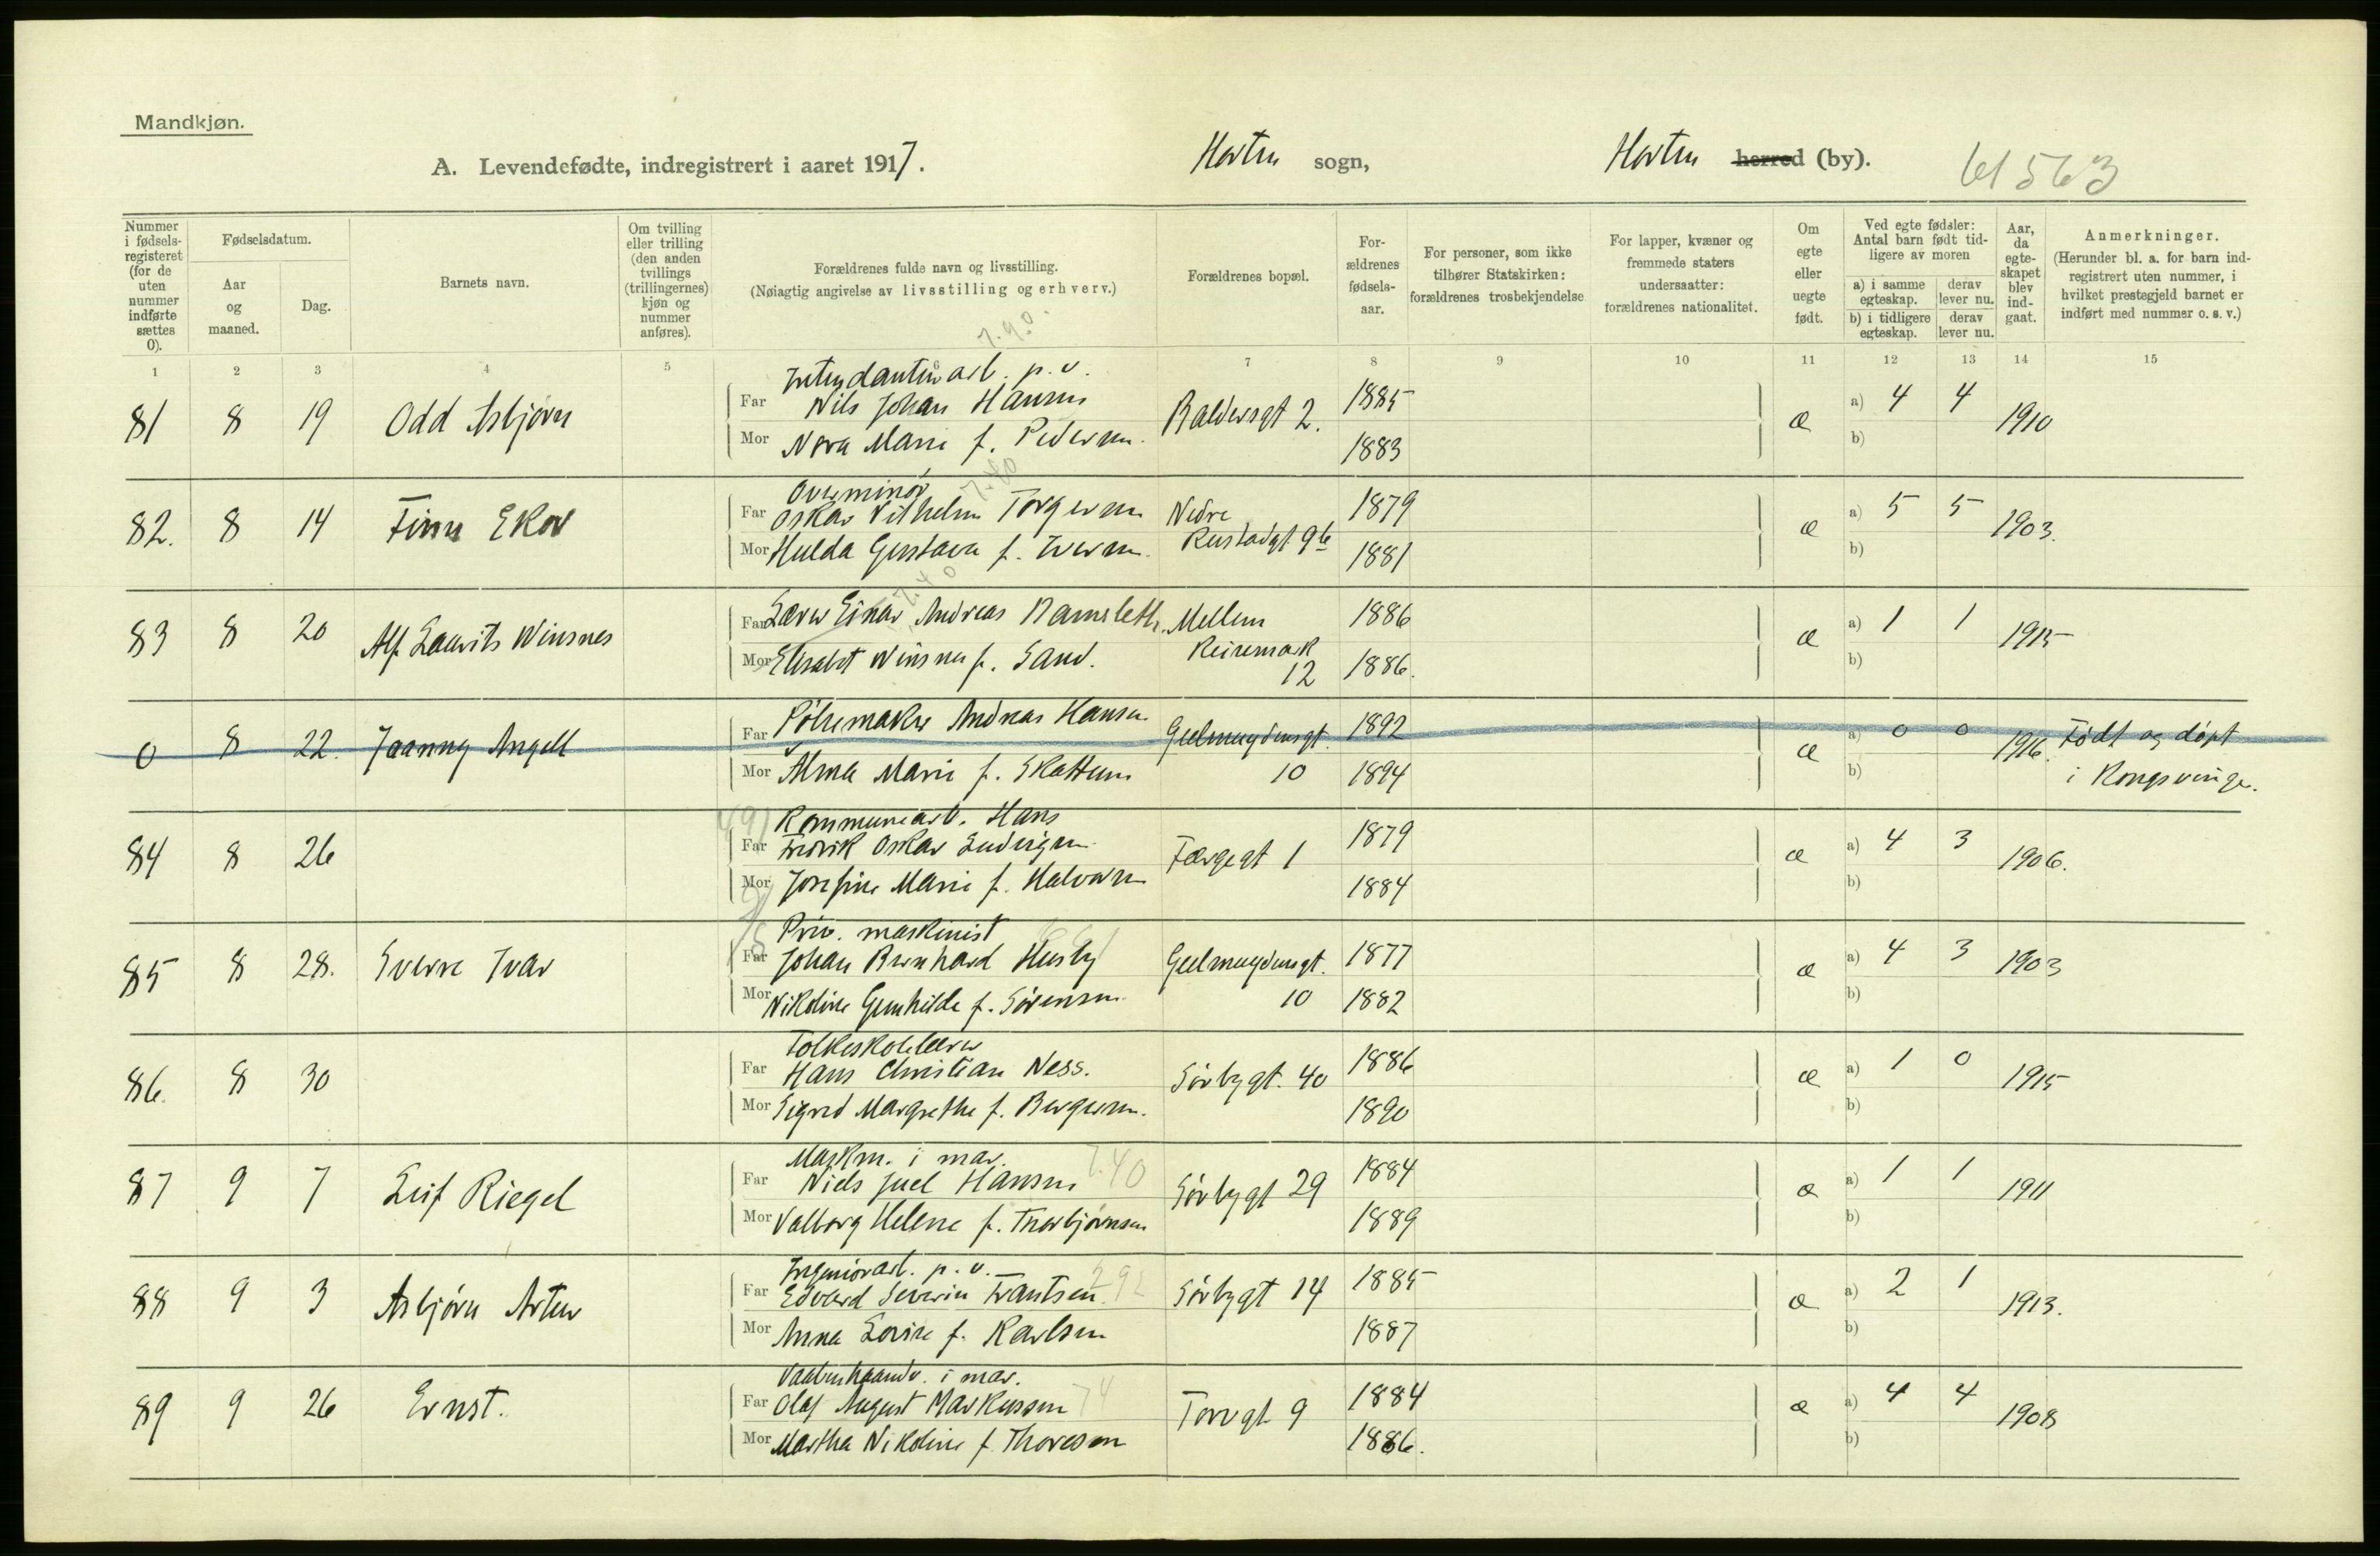 Mandkjøn.
A. Levendefødte, indregistrert i aaret 1917. Horten sogn, Horten herred (by). 61563
Nummer i fødsels-registeret (for de uten nummer indførte sættes 0).
Fødselsdatum.
Aar og maaned.
Dag.
Barnets navn.
Om tvilling eller trilling (den anden tvillings (trillingernes) kjøn og nummer anføres).
Forældrenes fulde navn og livsstilling.
(Nøiagtig angivelse av livsstilling og erhverv.)
Forældrenes bopæl.
For-ældrenes fødsels-aar.
For personer, som ikke tilhører Statskirken: forældrenes trosbekjendelse
For lapper, kvæner og fremmede staters undersaatter: forældrenes nationalitet.
Om egte eller uegte født.
Ved egte fødsler: Antal barn født tid-ligere av moren
a) i samme egteskap.
derav lever nu.
b) i tidligere egteskap.
derav lever nu.
Aar, da egte-skapet blev ind-gaat.
Anmerkninger.
(Herunder bl. a. for barn ind-registrert uten nummer, i hvilket prestegjeld barnet er indført med nummer o. s. v.)
1 2 3 4 5 6 7 8 9 10 11 12 13 14 15
Intendanturarb. p. v.
81 8 19 Odd Asbjørn Far Nils Johan Hansen Baldersgt 2. 1885 æ a) 4 4 1910
Mor Nora Marie f. Pedersen. 1883 b)
Overminør
82. 8 14 Finn Ekov Far Oskar Vilhelm Torgersen Nedre 1879 æ a) 5 5 1903.
Mor Hulda Gustava f. Iversen. Rustadgt 9b 1881 b)
83 8 20 Alf Laurits Winsnes Far Lærer Einar Andreas Ramsleth. Mellem 1886 æ a) 1 1 1915
Mor Elisabet Winsnes f. Sand. Keisemark 12 1886. b)
0 8 22. Jaanny Angell Far Pølsemaker Andreas Hansen Geelmuydensgt. 1892 æ a) 0 0 1916. Født og døpt
Mor Alma Marie f. Skattum 10 1894 b) i Kongsvinger.
Kommunearb. Hans
84 8 26 Far Fredrik Oskar Ludvigsen Færgegt 1 1879 æ a) 4 3 1906.
Mor Josefine Marie f. Halvorsen 1884 b)
Priv. maskinist
85 8 28. Sverre Ivar Far Johan Bernhard Husby Geelmuydensgt. 1877 æ a) 4 3 1903
Mor Nikoline Gunhilde f. Sørensen. 10 1882 b)
Folkeskolelærer
86. 8 30 Far Hans Christian Ness. Sørbygt. 40 1886 æ a) 1 0 1915
Mor Sigrid Margrethe f. Bergersen. 1890 b)
Maskm. i mar.
87 9 7 Leif Riegel Far Niels Juel Hansen Sørbygt 29 1884 æ a) 1 1 1911
Mor Valborg Helene f. Thorbjørnsen 1889 b)
Ingeniørarb. p. v.
88 9 3 Asbjørn Artur Far Edvard Severin Frantsen Sørbygt 14 1885 æ a) 2 1 1913.
Mor Anna Lovise f. Karlsen 1887 b)
Vaabenhaandv. i mar.
89 9 26 Ernst. Far Olaf August Markussen Torvgt 9 1884 æ a) 4 4 1908
Mor Martha Nikoline f. Thoresen 1886. b)